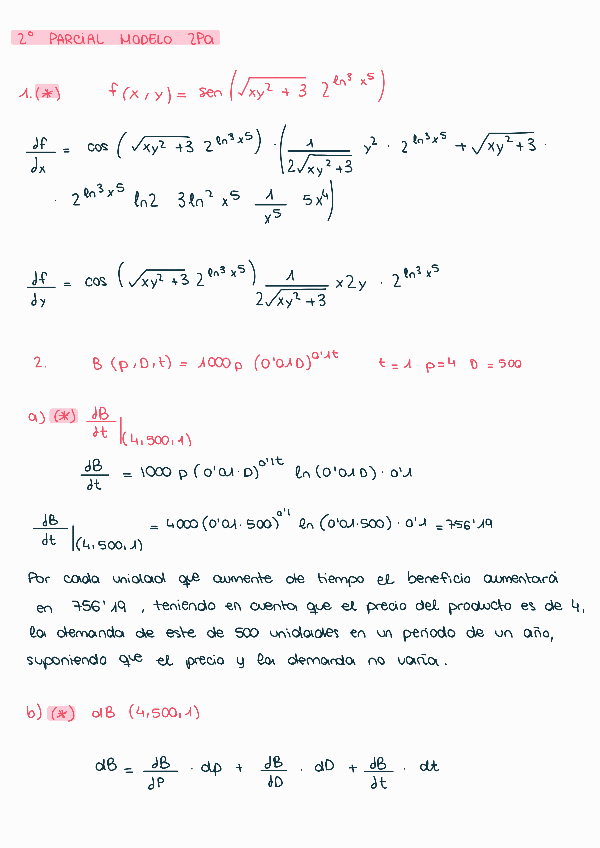 2º PARCIAL MODELO 2Pa
1.(*) f(x,y) = sen(√(xy² + 3) 2^(ln³ x⁵))
df/dx = cos(√(xy² + 3) 2^(ln³ x⁵)) · (1/(2√(xy² + 3)) y² · 2^(ln³ x⁵) + √(xy² + 3) ·
· 2^(ln³ x⁵) ln2 3ln² x⁵ 1/x⁵ 5x⁴)
df/dy = cos(√(xy² + 3) 2^(ln³ x⁵)) 1/(2√(xy² + 3)) x2y · 2^(ln³ x⁵)
2. B(p,D,t) = 1000p (0'01D)^(0'1t) t=1 p=4 D=500
a) (*) dB/dt |(4,500,1)
dB/dt = 1000 p (0'01·D)^(0'1t) ln(0'01D) · 0'1
dB/dt |(4,500,1) = 4000(0'01·500)^(0'1) ln(0'01·500) · 0'1 = 756'19
Por cada unidad que aumente de tiempo el beneficio aumentará
en 756'19, teniendo en cuenta que el precio del producto es de 4,
la demanda de este de 500 unidades en un período de un año,
suponiendo que el precio y la demanda no varía.
b) (*) dB (4,500,1)
dB = dB/dP · dp + dB/dD · dD + dB/dt · dt